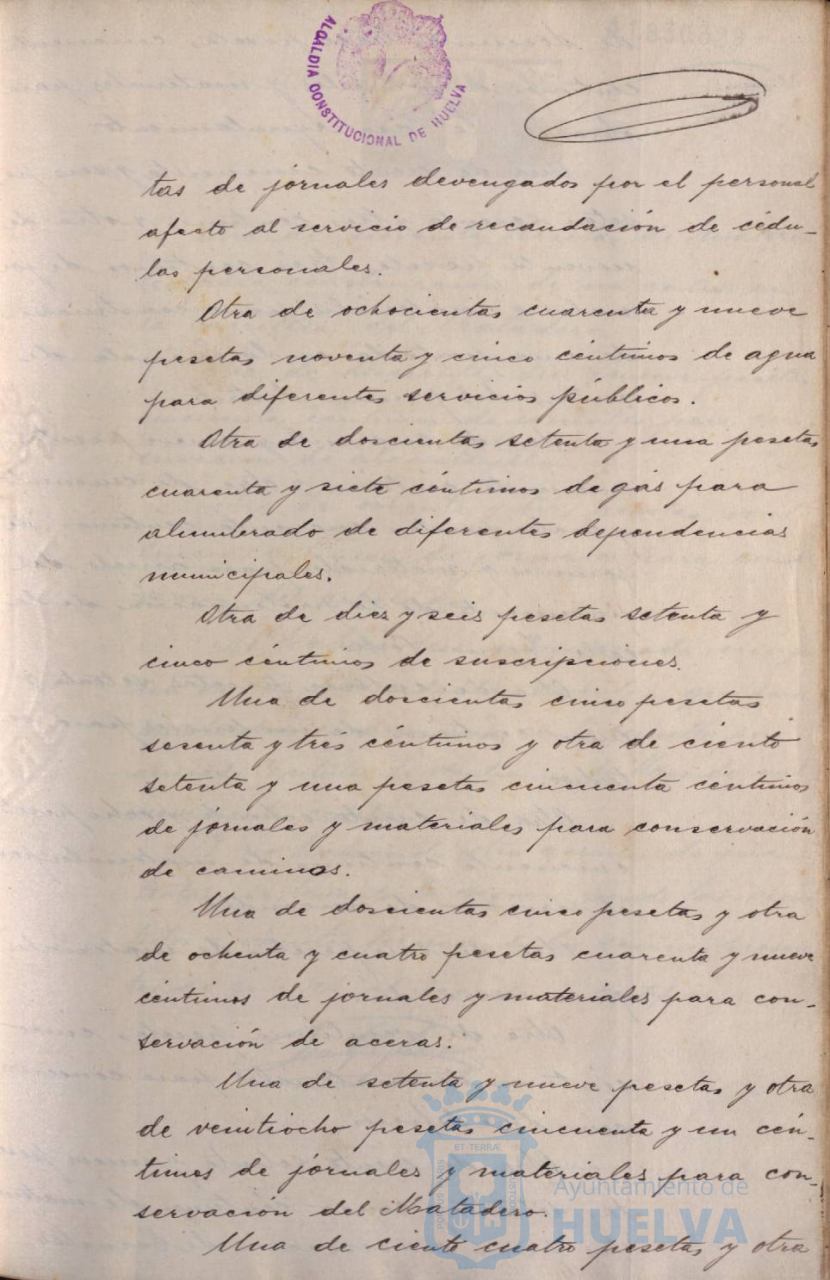 ALCALDIA CONSTITUCIONAL DE HUELVA
tas de jornales devengados por el personal
afecto al servicio de recaudación de cédu-
las personales.
Otra de ochocientas cuarenta y nueve
pesetas noventa y cinco céntimos de agua
para diferentes servicios públicos.
Otra de doscientas setenta y una pesetas
cuarenta y siete céntimos de gas para
alumbrado de diferentes dependencias
municipales.
Otra de diez y seis pesetas setenta y
cinco céntimos de suscripciones.
Una de doscientas cinco pesetas
sesenta y tres céntimos y otra de ciento
setenta y una pesetas cincuenta céntimos
de jornales y materiales para conservación
de caminos.
Una de doscientas cinco pesetas y otra
de ochenta y cuatro pesetas cuarenta y nueve
céntimos de jornales y materiales para con-
servación de aceras.
Una de setenta y nueve pesetas y otra
de veintiocho pesetas cincuenta y un cén-
timos de jornales y materiales para con-
servación del Matadero.
Una de ciento cuatro pesetas y otra
ET TERRÆ
Ayuntamiento de
HUELVA